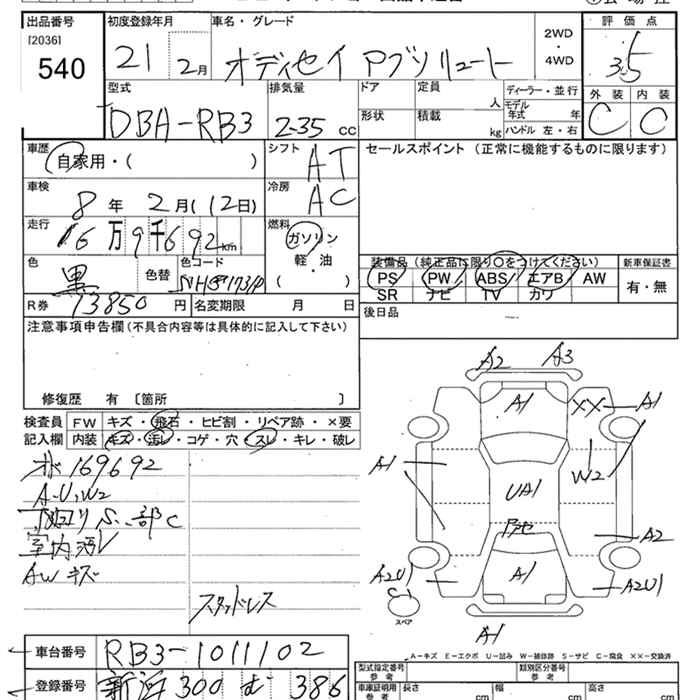 出品番号
[2036]
540
初度登録年月
21 2月
車名・グレード
オデッセイ アブソリュート
2WD
・
4WD
評価点
3.5
外装 内装
C C
型式
DBA-RB3
排気量
2.35 cc
ドア
定員
人
形状
積載
kg
ディーラー・並行
モデル
年式 年
ハンドル 左・右
車歴
自家用・( )
シフト
AT
セールスポイント (正常に機能するものに限ります)
車検
8年 2月(12日)
冷房
AC
走行
16万9千692km
燃料
ガソリン
軽・油
・
( )
色
黒
色替
色コード
装備品(純正品に限り○をつけてください)
PS PW ABS エアB AW
SR ナビ TV カワ
新車保証書
有・無
R券
13850円
名変期限 月 日
後日品
注意事項申告欄(不具合内容等は具体的に記入して下さい)
修復歴 有 〔箇所 〕
検査員
記入欄
FW キズ・飛石・ヒビ割・リペア跡・×要
内装 キズ・汚レ・コゲ・穴・スレ・キレ・破レ
169692
A.U.W2
下回りS、一部C
室内汚レ
AWキズ
スタッドレス
A2 A3
A1 XX A1
A1 W2
UA1
A2
A2U1 A1 A2U1
C1
スペア
A1
A－キズ E－エクボ U－凹み W－補修跡 S－サビ C－腐食 XX－交換済
車台番号
RB3-1011102
登録番号
新潟 300 む 386
型式指定番号
参考
類別区分番号
参考
車庫証明用
参考
長さ cm
幅 cm
高さ cm